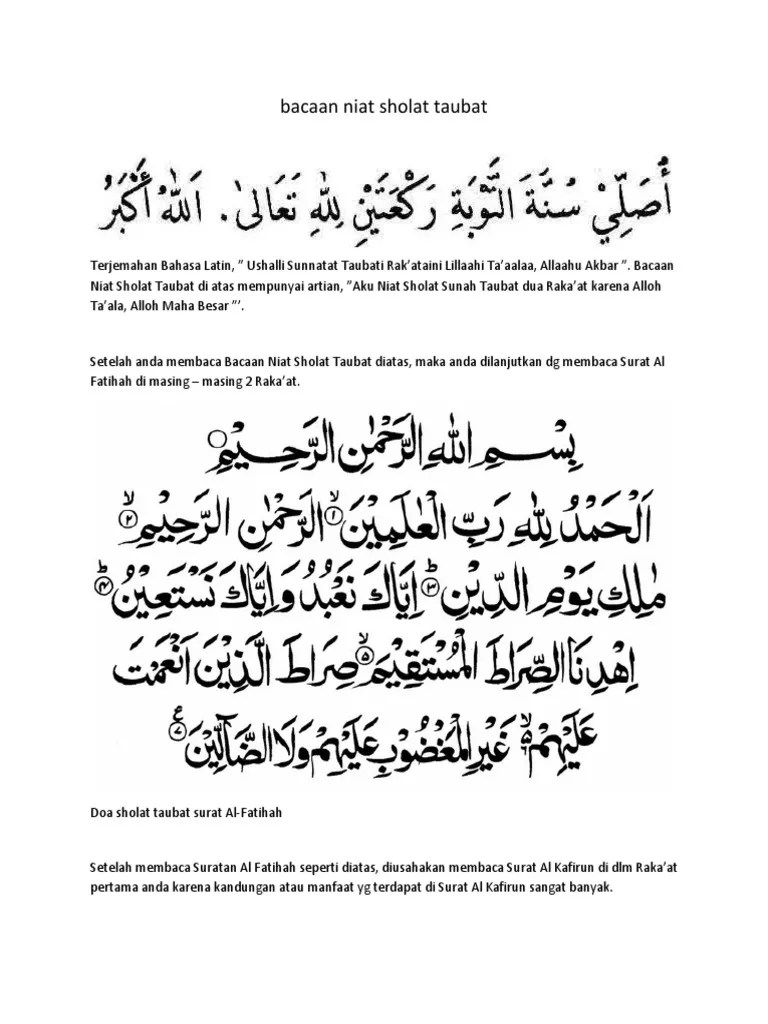 bacaan niat sholat taubat
أُصَلِّيْ سُنَّةَ التَّوْبَةِ رَكْعَتَيْنِ لِلّٰهِ تَعَالىٰ. اَللهُ أَكْبَرُ
Terjemahan Bahasa Latin, ” Ushalli Sunnatat Taubati Rak’ataini Lillaahi Ta’aalaa, Allaahu Akbar ”. Bacaan
Niat Sholat Taubat di atas mempunyai artian, ”Aku Niat Sholat Sunah Taubat dua Raka’at karena Alloh
Ta’ala, Alloh Maha Besar ”’.
Setelah anda membaca Bacaan Niat Sholat Taubat diatas, maka anda dilanjutkan dg membaca Surat Al
Fatihah di masing – masing 2 Raka’at.
بِسْمِ اللهِ الرَّحْمٰنِ الرَّحِيْمِ
اَلْحَمْدُ لِلّٰهِ رَبِّ الْعٰلَمِيْنَۙ ١ الرَّحْمٰنِ الرَّحِيْمِۙ ٢
مٰلِكِ يَوْمِ الدِّيْنِۗ ٣ اِيَّاكَ نَعْبُدُ وَاِيَّاكَ نَسْتَعِيْنُۗ ٤
اِهْدِنَا الصِّرَاطَ الْمُسْتَقِيْمَۙ ٥ صِرَاطَ الَّذِيْنَ اَنْعَمْتَ
عَلَيْهِمْۙ غَيْرِ الْمَغْضُوْبِ عَلَيْهِمْ وَلَا الضَّاۤلِّيْنَ ٧
Doa sholat taubat surat Al-Fatihah
Setelah membaca Suratan Al Fatihah seperti diatas, diusahakan membaca Surat Al Kafirun di dlm Raka’at
pertama anda karena kandungan atau manfaat yg terdapat di Surat Al Kafirun sangat banyak.